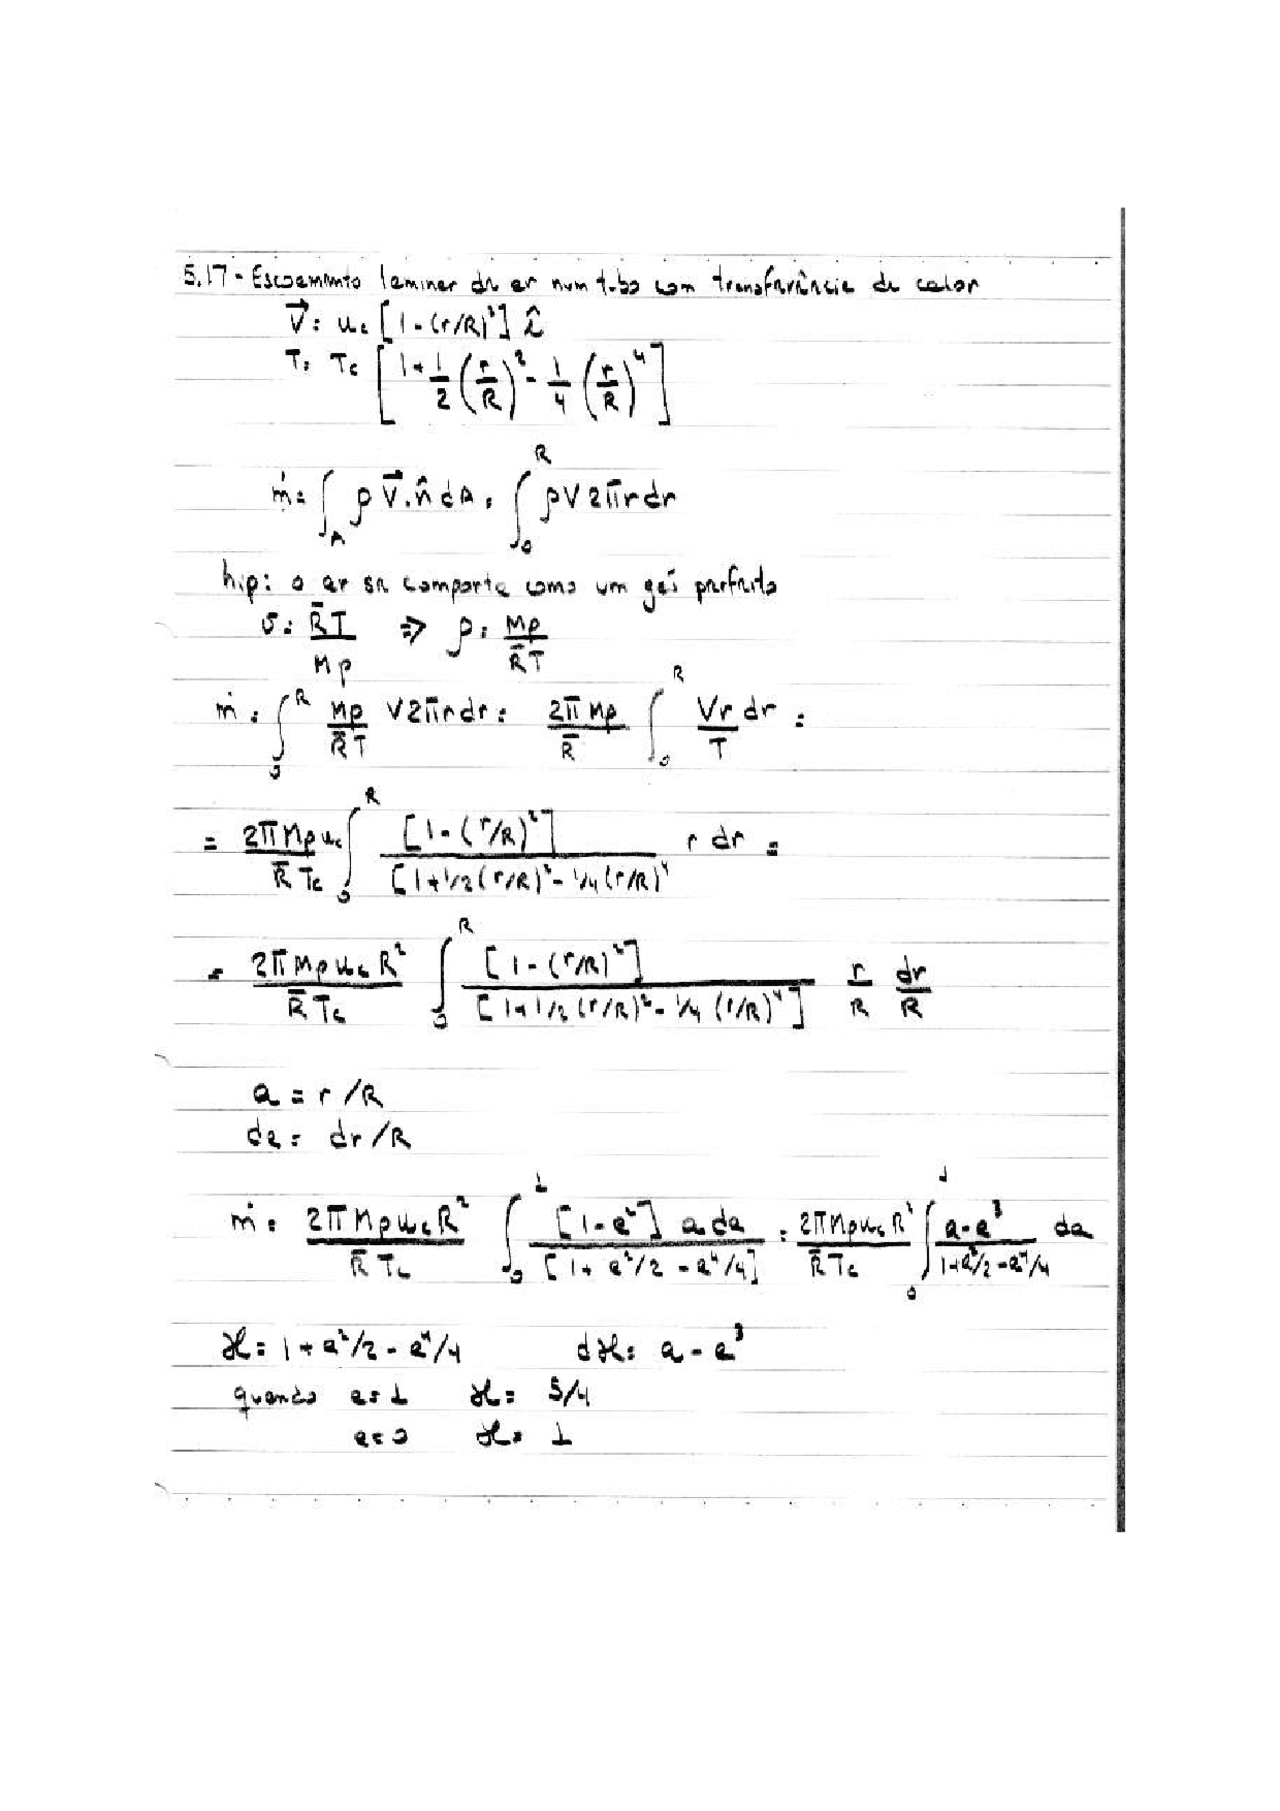 5.17 - Escoamento laminar de ar num tubo com transferência de calor
V⃗ = u_c [1 - (r/R)²] î
T = T_c [1 + 1/2 (r/R)² - 1/4 (r/R)⁴]
ṁ = ∫_A ρ V⃗ . n̂ dA = ∫_0^R ρ V 2π r dr
hip: o ar se comporta como um gás perfeito
v = R̄T/Mp ⇒ ρ = Mp/R̄T
ṁ = ∫_0^R Mp/R̄T V 2π r dr = 2π Mp/R̄ ∫_0^R Vr/T dr =
= 2π Mp u_c/R̄ T_c ∫_0^R [1 - (r/R)²]/[1 + 1/2 (r/R)² - 1/4 (r/R)⁴ r dr =
= 2π Mp u_c R²/R̄ T_c ∫_0^R [1 - (r/R)²]/[1 + 1/2 (r/R)² - 1/4 (r/R)⁴] r/R dr/R
a = r/R
da = dr/R
ṁ = 2π Mp u_c R²/R̄ T_c ∫_0^1 [1 - a²] a da/[1 + a²/2 - a⁴/4] = 2π Mp u_c R²/R̄ T_c ∫_0^1 a - a³/1 + a²/2 - a⁴/4 da
x = 1 + a²/2 - a⁴/4 dx = a - a³
quando a = 1 x = 5/4
a = 0 x = 1